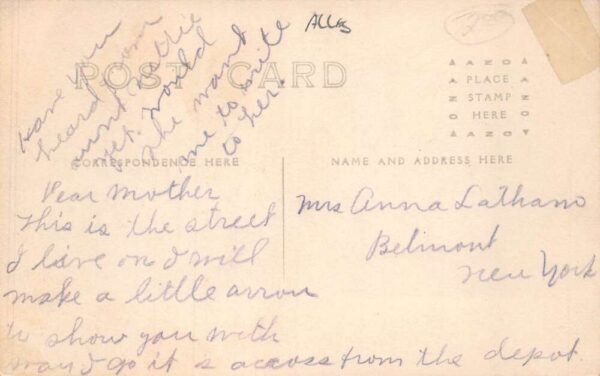 ALLES
Have you
heard from
aunt
yet. would
she want
me to write
to her.
POST CARD
AZO
PLACE
STAMP
HERE
AZO
CORRESPONDENCE HERE
NAME AND ADDRESS HERE
Dear Mother
This is the street
I live on I will
make a little arrow
to show you with
way I go it s across from the depot.
Mrs Anna Latham
Belmont
New York